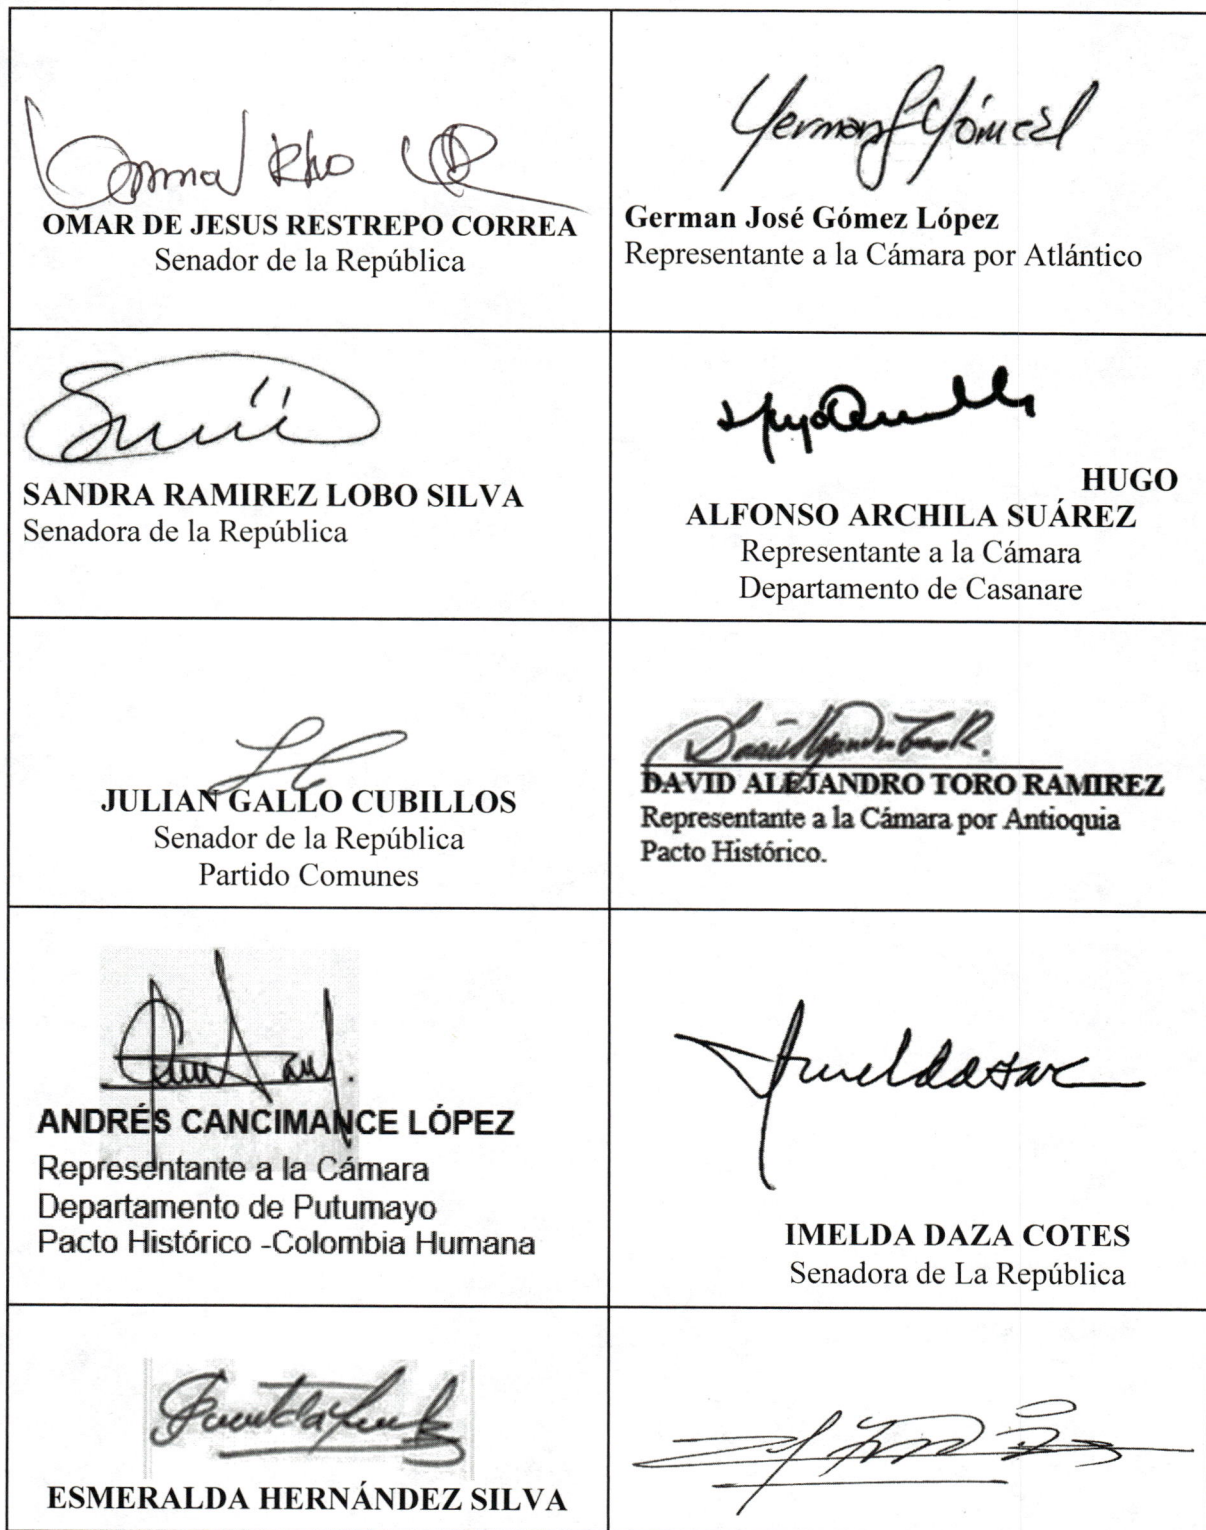 OMAR DE JESUS RESTREPO CORREA
Senador de la República
German Gómez
German José Gómez López
Representante a la Cámara por Atlántico
SANDRA RAMIREZ LOBO SILVA
Senadora de la República
HUGO
ALFONSO ARCHILA SUÁREZ
Representante a la Cámara
Departamento de Casanare
JULIAN GALLO CUBILLOS
Senador de la República
Partido Comunes
DAVID ALEJANDRO TORO RAMIREZ
Representante a la Cámara por Antioquia
Pacto Histórico.
ANDRÉS CANCIMANCE LÓPEZ
Representante a la Cámara
Departamento de Putumayo
Pacto Histórico -Colombia Humana
IMELDA DAZA COTES
Senadora de La República
ESMERALDA HERNÁNDEZ SILVA